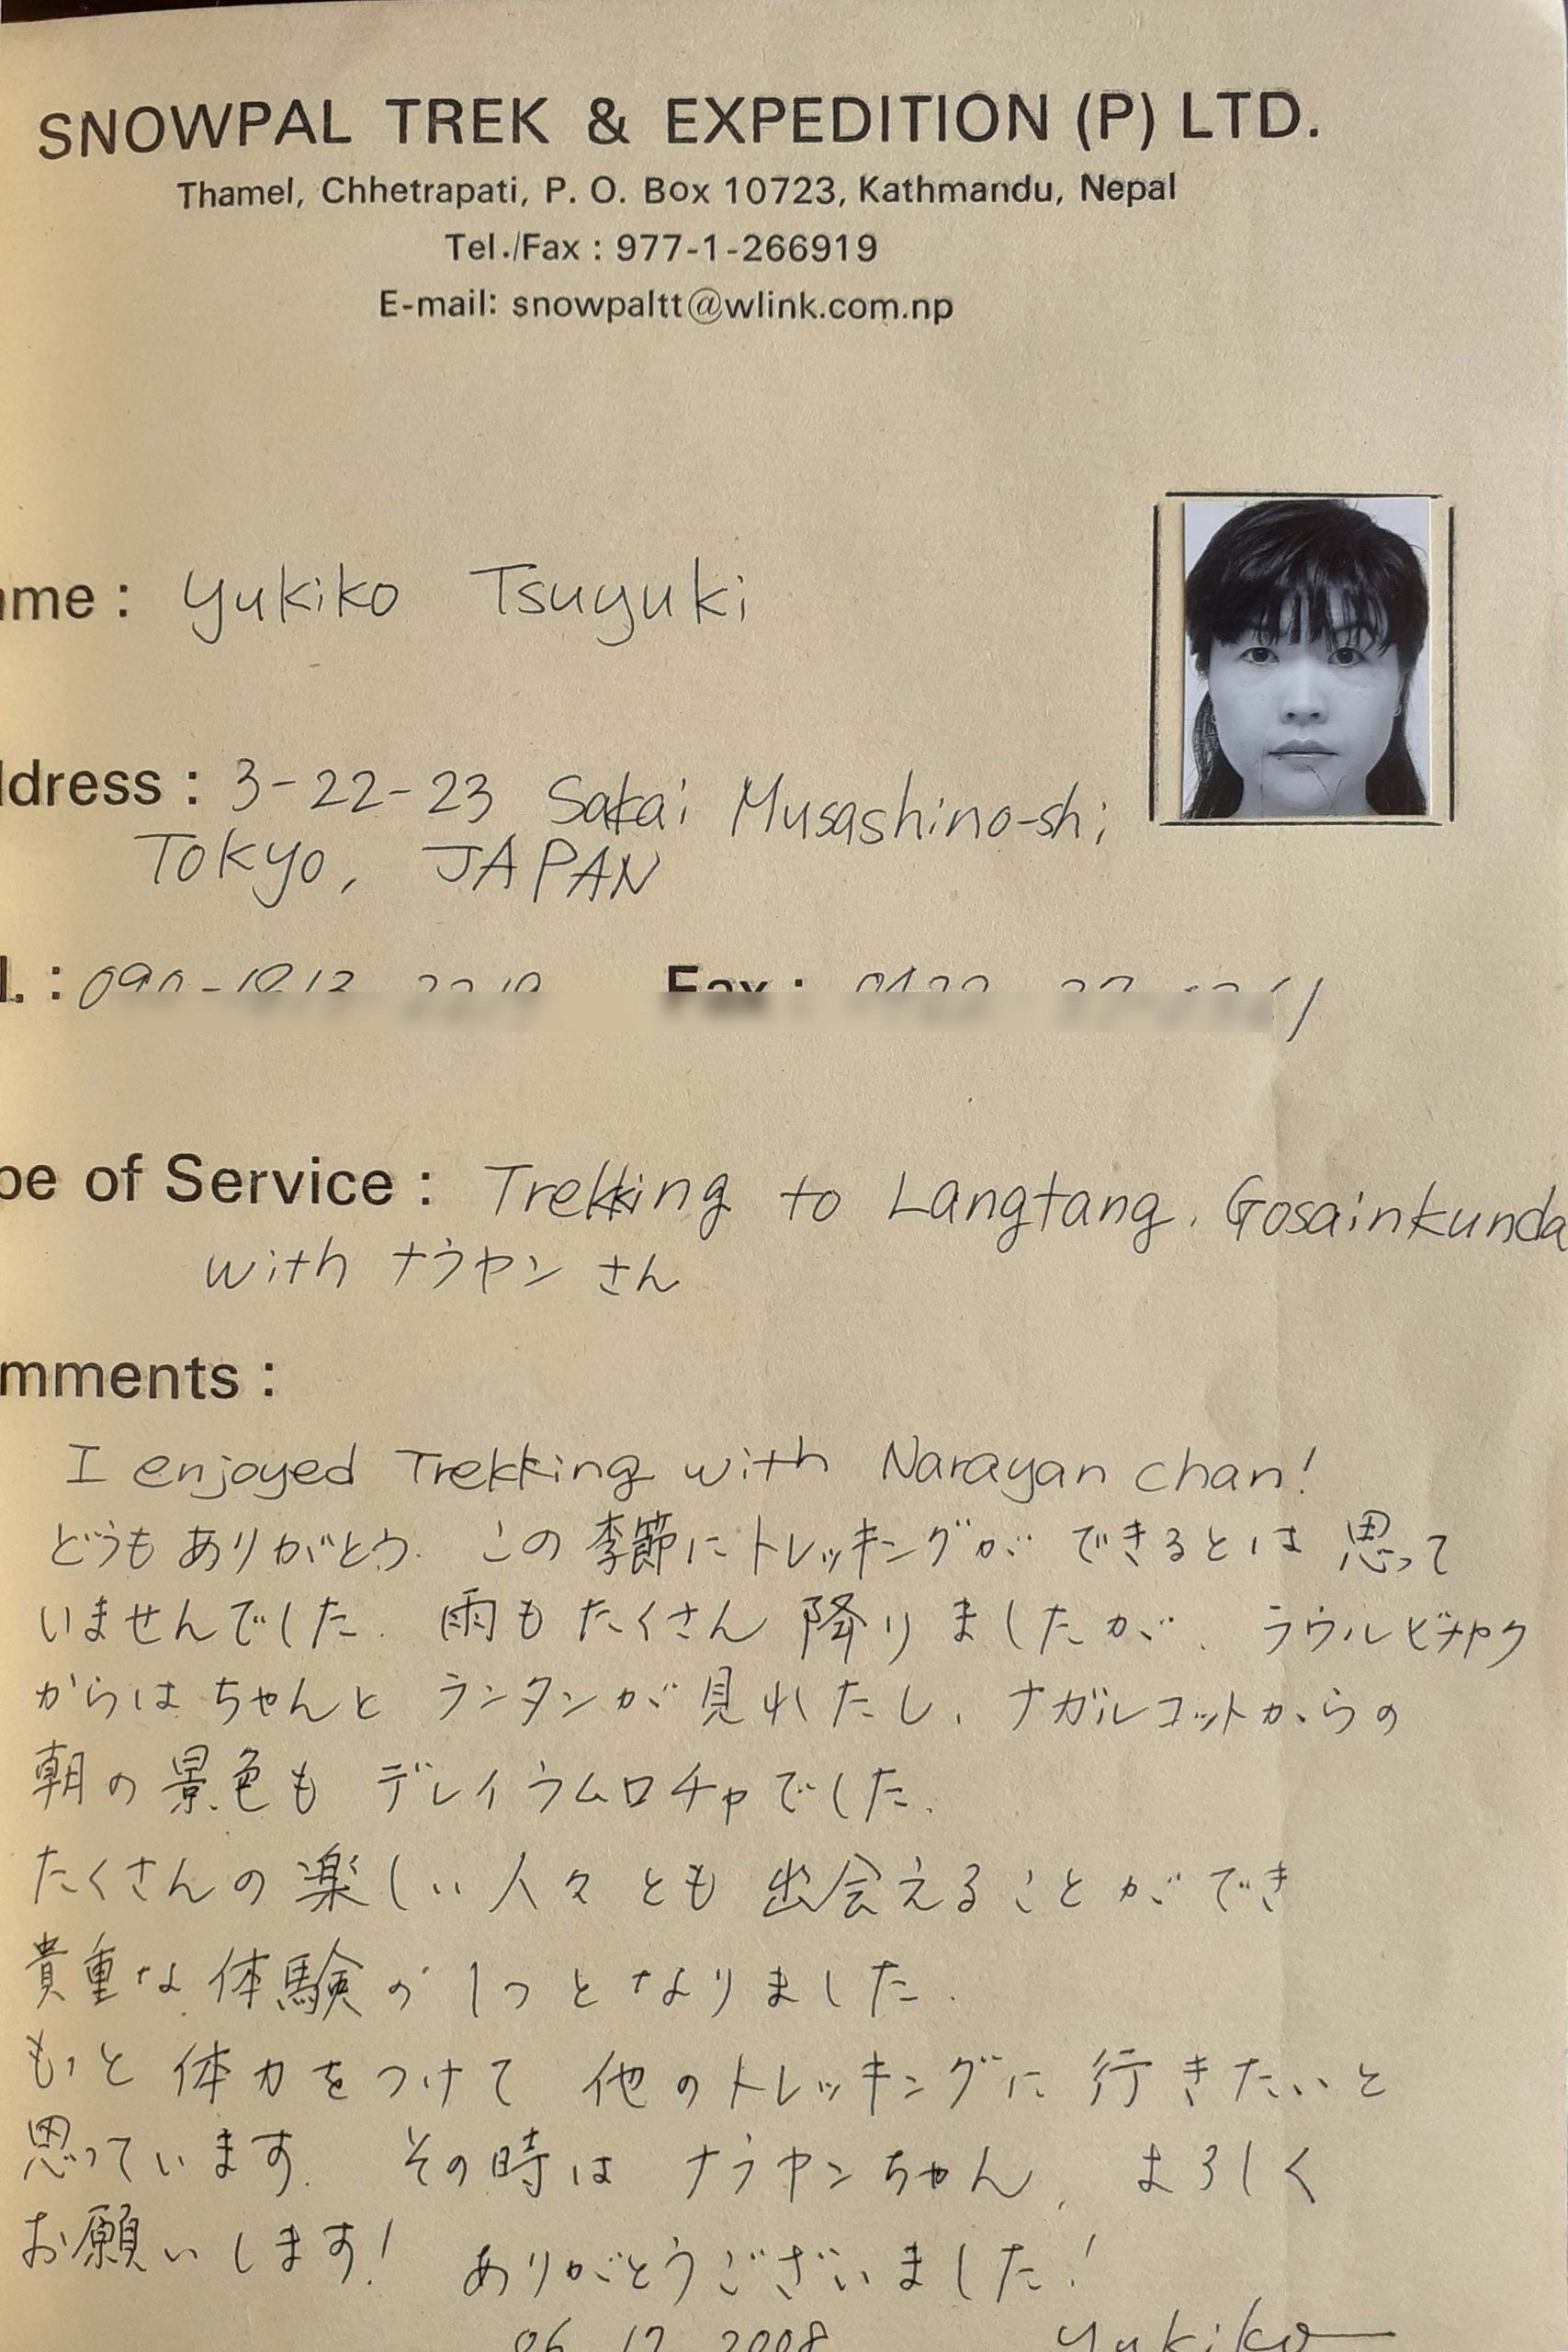 SNOWPAL TREK & EXPEDITION (P) LTD.
Thamel, Chhetrapati, P. O. Box 10723, Kathmandu, Nepal
Tel./Fax : 977-1-266919
E-mail: snowpaltt@wlink.com.np
ame : Yukiko Tsuyuki
ddress : 3-22-23 Sakai Musashino-shi
TOKYO, JAPAN
l. : Fax :
pe of Service : Trekking to Langtang, Gosainkunda
with ナラヤン さん
mments :
I enjoyed Trekking with Narayan chan!
どうもありがとう. この季節にトレッキングができるとは思って
いませんでした. 雨もたくさん降りましたが、ラウルビナヤク
からはちゃんとランタンが見れたし、ナガルコットからの
朝の景色もデレイラムロチャでした.
たくさんの楽しい人々とも出会えることができ
貴重な体験の1つとなりました.
もっと体力をつけて他のトレッキングに行きたいと
思っています. その時はナラヤンちゃん、よろしく
お願いします! ありがとうございました!
06 12 2008 Yukiko